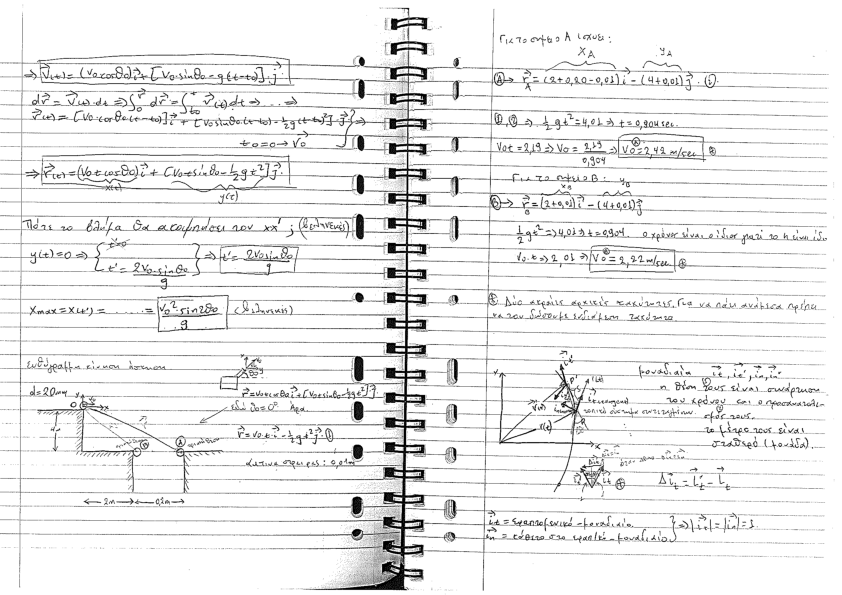 ⇒ v⃗(t) = (v₀cosθ₀)i⃗ + [v₀sinθ₀ - g(t-t₀)]·j⃗
dr⃗ = v⃗(t)·dt ⇒ ∫₀ʳ dr⃗ = ∫ₜ₀ᵗ v⃗(t)dt ⇒ ... ⇒
r⃗(t) = [v₀cosθ₀(t-t₀)]i⃗ + [v₀sinθ₀(t-t₀) - ½g(t-t₀)²]·j⃗ ⇒
t₀=0 → v⃗₀
⇒ r⃗(t) = (v₀t cosθ₀)i⃗ + [v₀t sinθ₀ - ½gt²]j⃗
x(t) y(t)
Πότε το βλήμα θα συναντήσει τον xx' ; (βεληνεκές)
y(t)=0 ⇒ { t'=0
t' = 2v₀·sinθ₀/g ⇒ t' = 2v₀sinθ₀/g
xmax = x(t') = ...... = v₀²·sin2θ₀/g (βεληνεκές)
Ευθύγραμμη κίνηση
d=20mm
r⃗ = v₀tcosθ₀i⃗ + [v₀tsinθ₀ - ½gt²]·j⃗
εδώ θ₀=0° Άρα
r⃗ = v₀t·i⃗ - ½gt²j⃗ ①
ακτίνα σφαίρας: 0,01m
2m 0,2m
Για το σημείο Α ισχύει:
x_A y_A
Ⓐ→ r⃗_A = (2+0,20-0,01)i⃗ - (4+0,01)j⃗ ·(i)
①,② ⇒ ½gt² = 4,01 ⇒ t = 0,904sec.
v₀t = 2,19 ⇒ v₀ = 2,19/0,904 ⇒ v₀=2,42 m/sec ⊛
Για το σημείο Β:
x_B y_B
Ⓑ→ r⃗_B = (2+0,01)i⃗ - (4+0,01)j⃗
½gt² = 4,01 ⇒ t = 0,904. ο χρόνος είναι ο ίδιος γιατί το h είναι ίδιο
v₀·t = 2,01 ⇒ v₀ = 2,22m/sec ⊛
⊛ Δύο ακραίες αρχικές ταχύτητες. Για να πάει ανάμεσα πρέπει
να του δώσουμε ενδιάμεση ταχύτητα.
μοναδιαία i⃗t, i⃗t', i⃗n, i⃗n'
η θέση τους είναι συνάρτηση
του χρόνου και ο προσανατολι-
σμός τους.
το μέτρο τους είναι
σταθερό (μονάδα).
Δi⃗t = i⃗t' - i⃗t
i⃗t = εφαπτομενικό - μοναδιαίο. } ⇒ |i⃗t| = |i⃗n| = 1.
i⃗n = κάθετο στο εφαπ/κό - μοναδιαίο.